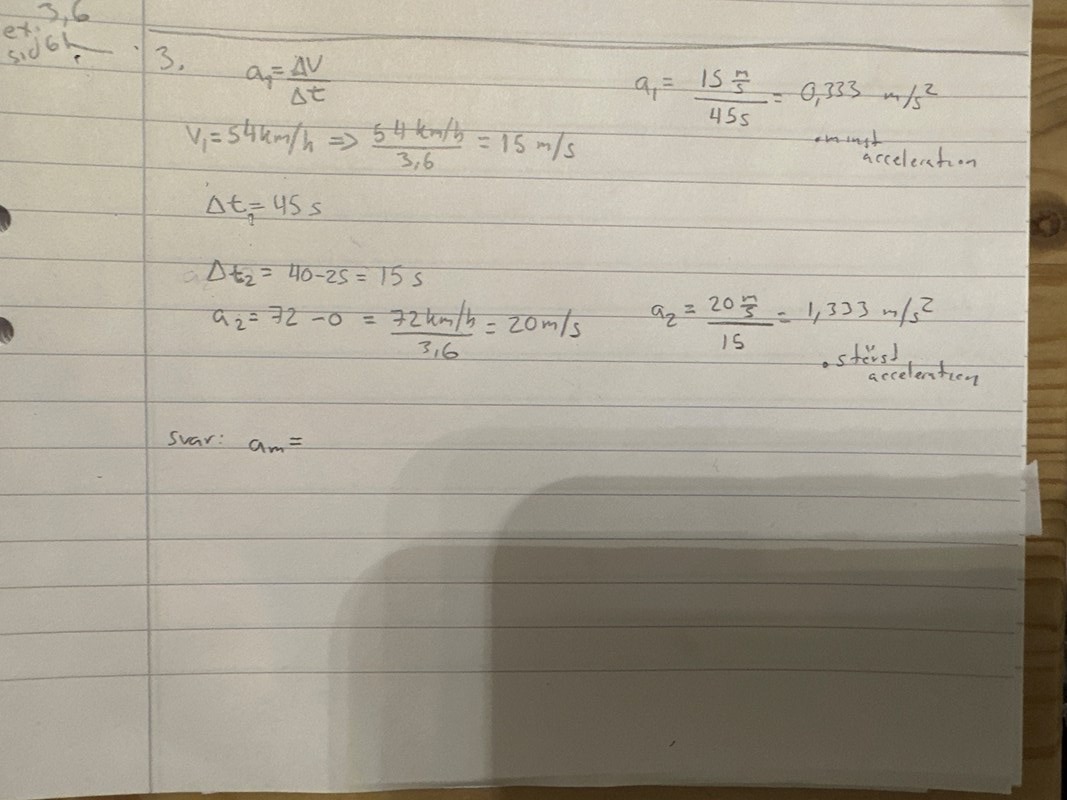 3,6
ex:
3.
a₁ = ΔV/Δt
a₁ = 15 m/s / 45s = 0,333 m/s²
V₁ = 54km/h => 54 km/h / 3,6 = 15 m/s
minst
acceleration
Δt₁ = 45 s
Δt₂ = 40-25 = 15 s
a₂ = 72 - 0 = 72 km/h / 3,6 = 20 m/s
a₂ = 20 m/s / 15 = 1,333 m/s²
• störst
acceleration
svar: aₘ =